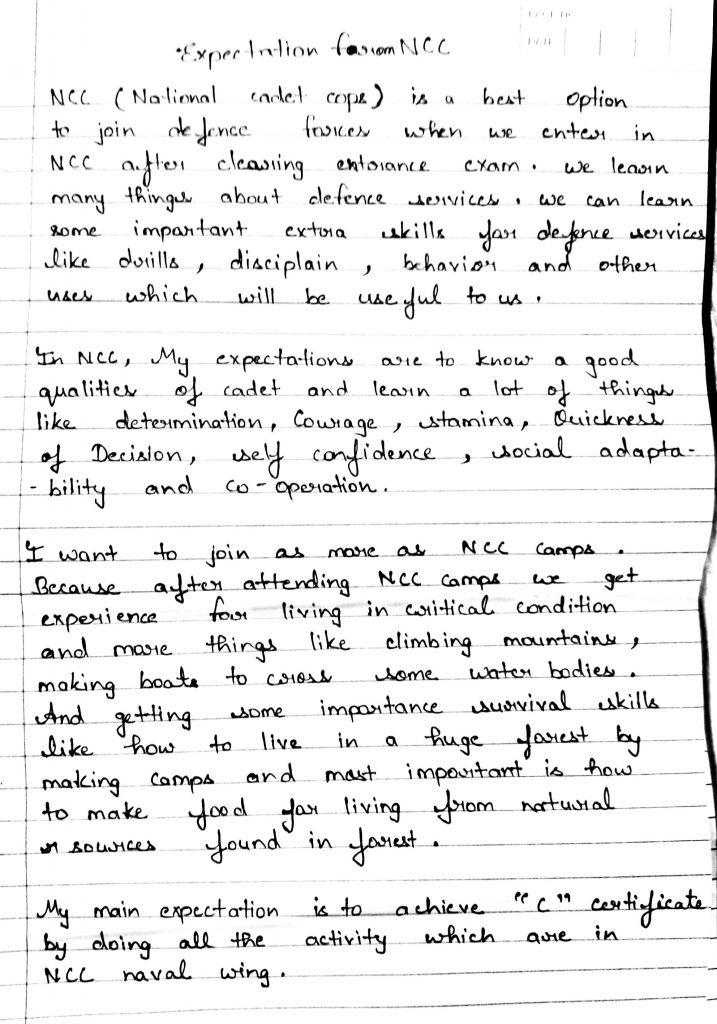 Expectation from NCC
NCC (National cadet cops) is a best option
to join defence forces when we enter in
NCC after clearing entorance exam. we learn
many things about defence services. we can learn
some important extra skills for defence services
like drills, disciplain, behavior and other
uses which will be useful to us.
In NCC, My expectations are to know a good
qualities of cadet and learn a lot of things
like determination, Courage, stamina, Quickness
of Decision, self confidence, social adapta-
-bility and co-operation.
I want to join as more as NCC camps.
Because after attending NCC camps we get
experience for living in critical condition
and more things like climbing mountains,
making boats to cross some water bodies.
And getting some importance survival skills
like how to live in a huge forest by
making camps and most important is how
to make food for living from natural
sources found in forest.
My main expectation is to achieve "C" certificate
by doing all the activity which are in
NCC naval wing.